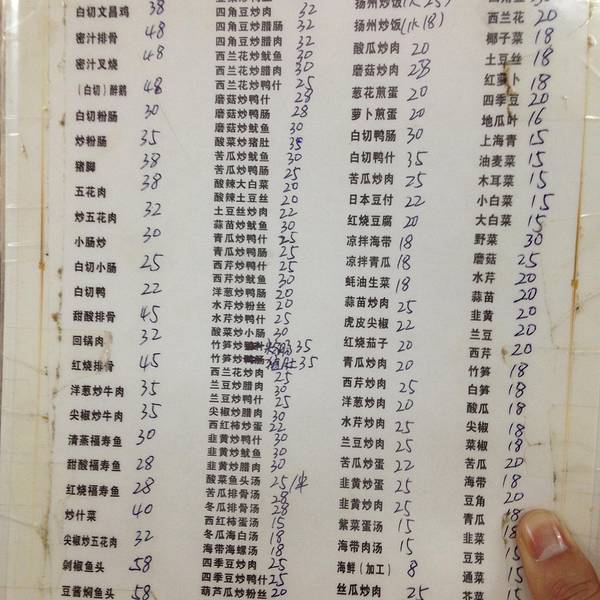 白切文昌鸡 38
密汁排骨 48
密汁叉烧 48
(白切)醉鹅 48
白切粉肠 30
炒粉肠 35
猪脚 38
五花肉 38
炒五花肉 32
小肠炒 30
白切小肠 25
白切鸭 22
甜酸排骨 45
回锅肉 32
红烧排骨 45
洋葱炒牛肉 35
尖椒炒牛肉 35
清蒸福寿鱼 30
甜酸福寿鱼 28
红烧福寿鱼 28
炒什菜 40
尖椒炒五花肉 32
剁椒鱼头 58
豆酱焖鱼头 58
四角豆炒肉 32
四角豆炒腊肠 32
四角豆炒腊肉 32
西兰花炒鱿鱼 30
西兰花炒腊肉 30
西兰花炒鸭什 25
蘑菇炒鸭什 28
蘑菇炒鸭肠 28
蘑菇炒鱿鱼 30
酸菜炒猪肚 35
苦瓜炒鱿鱼 30
苦瓜炒鸭肠 25
酸辣大白菜 20
酸辣土豆丝 20
土豆丝炒肉 22
蒜苗炒鱿鱼 30
青瓜炒鸭什 25
青瓜炒鸭肠 25
西芹炒鸭什 25
西芹炒鱿鱼 30
洋葱炒鸭肠 20
水芹炒粉丝 20
水芹炒鸭什 25
酸菜炒小肠 30
竹笋炒 35
竹笋炒 猪肚 35
西兰花炒肉 25
兰豆炒腊肉 30
兰豆炒鸭什 25
尖椒炒腊肉 30
西红柿炒蛋 22
韭黄炒鸭什 30
韭黄炒鱿鱼 30
韭黄炒腊肉 30
酸菜鱼头汤 25/半
苦瓜排骨汤 28
冬瓜排骨汤 28
西红柿蛋汤 15
冬瓜海白汤 18
海带海螺汤 18
四季豆炒肉 25
四季豆炒鸭什 25
葫芦瓜炒粉丝 20
扬州炒饭
扬州炒饭(小 18)
酸瓜炒肉 20
磨菇炒肉 28
葱花煎蛋 20
萝卜煎蛋 20
白切鸭肠 30
白切鸭什 35
苦瓜炒肉 25
日本豆付 22
红烧豆腐 20
凉拌海带 18
凉拌青瓜 18
蚝油生菜 18
蒜苗炒肉 25
虎皮尖椒 22
红烧茄子 20
青瓜炒肉 20
西芹炒肉 25
洋葱炒肉 20
水芹炒肉 25
兰豆炒肉 25
苦瓜炒蛋 22
韭黄炒蛋 25
韭黄炒肉 25
紫菜蛋汤 15
海带肉汤 15
海鲜(加工) 8
丝瓜炒肉 25
西兰花 20
椰子菜 18
土豆丝 18
红萝卜 18
四季豆 20
地瓜叶 16
上海青 15
油麦菜 15
木耳菜 15
小白菜 15
大白菜 15
野菜 30
磨菇 25
水芹 20
蒜苗 20
韭黄 20
兰豆 20
西芹 20
竹笋 18
白笋 18
酸瓜 18
尖椒 18
菜椒 18
苦瓜 20
海带 18
豆角 20
青瓜 18
韭菜 18
豆芽 15
通菜 15
芥菜 15